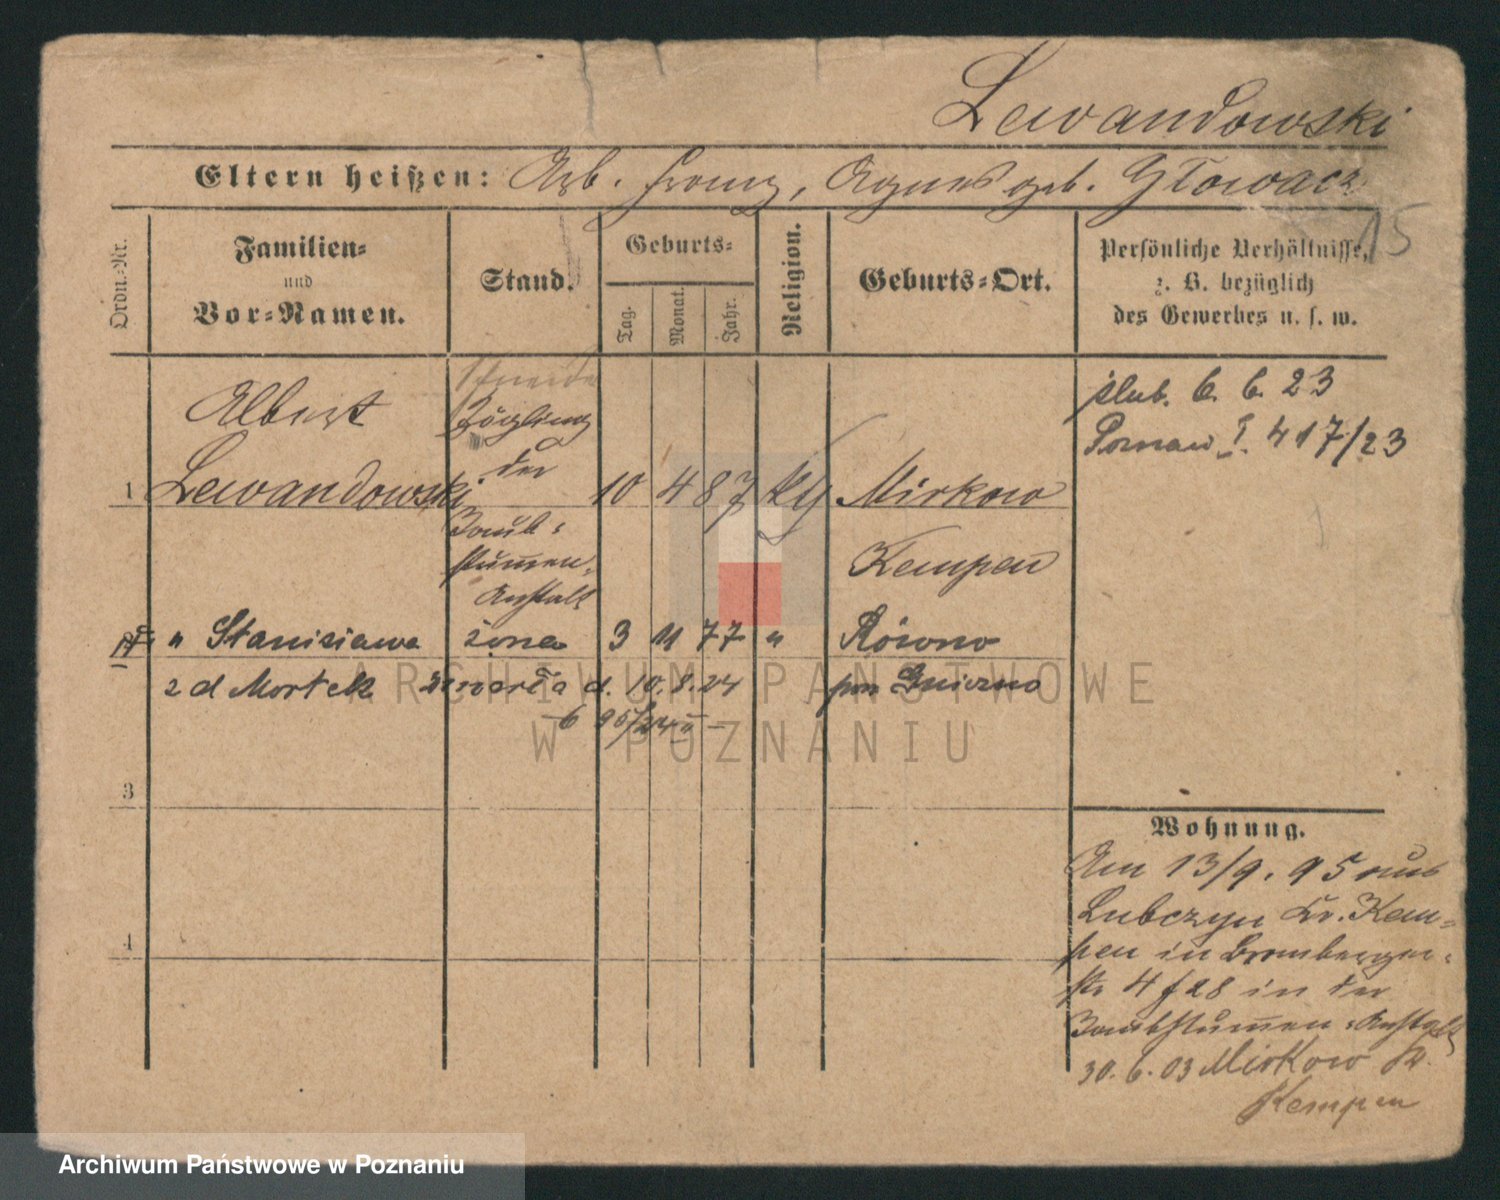 Lewandowski
Eltern heißen: Arb. Franz, Agnes geb. Głowacz
15
Ordn.-Nr.
Familien-
und
Vor-Namen.
Stand.
Geburts-
Tag.
Monat.
Jahr.
Religion.
Geburts-Ort.
Persönliche Verhältnisse,
z. B. bezüglich
des Gewerbes u. s. w.
Albert
Zögling
der
1 Lewandowski 10 4 87 Mirkow
Taub-
stummen-
Anstalt
Kempen
ślub. 6. 6. 23
Poznań I. 417/23
" Stanisława żona 3 11 77 " Równo
z d Mortek zmarła d. 10.8.24
3
4
Wohnung.
Am 13/9. 95 aus
Lubczyn Kr. Kem-
pen in Bromberger-
str 4 f 28 in der
Taubstummen-Anstalt
30. 6. 03 Mirkow Kr.
Kempen
ARCHIWUM PAŃSTWOWE
W POZNANIU
Archiwum Państwowe w Poznaniu